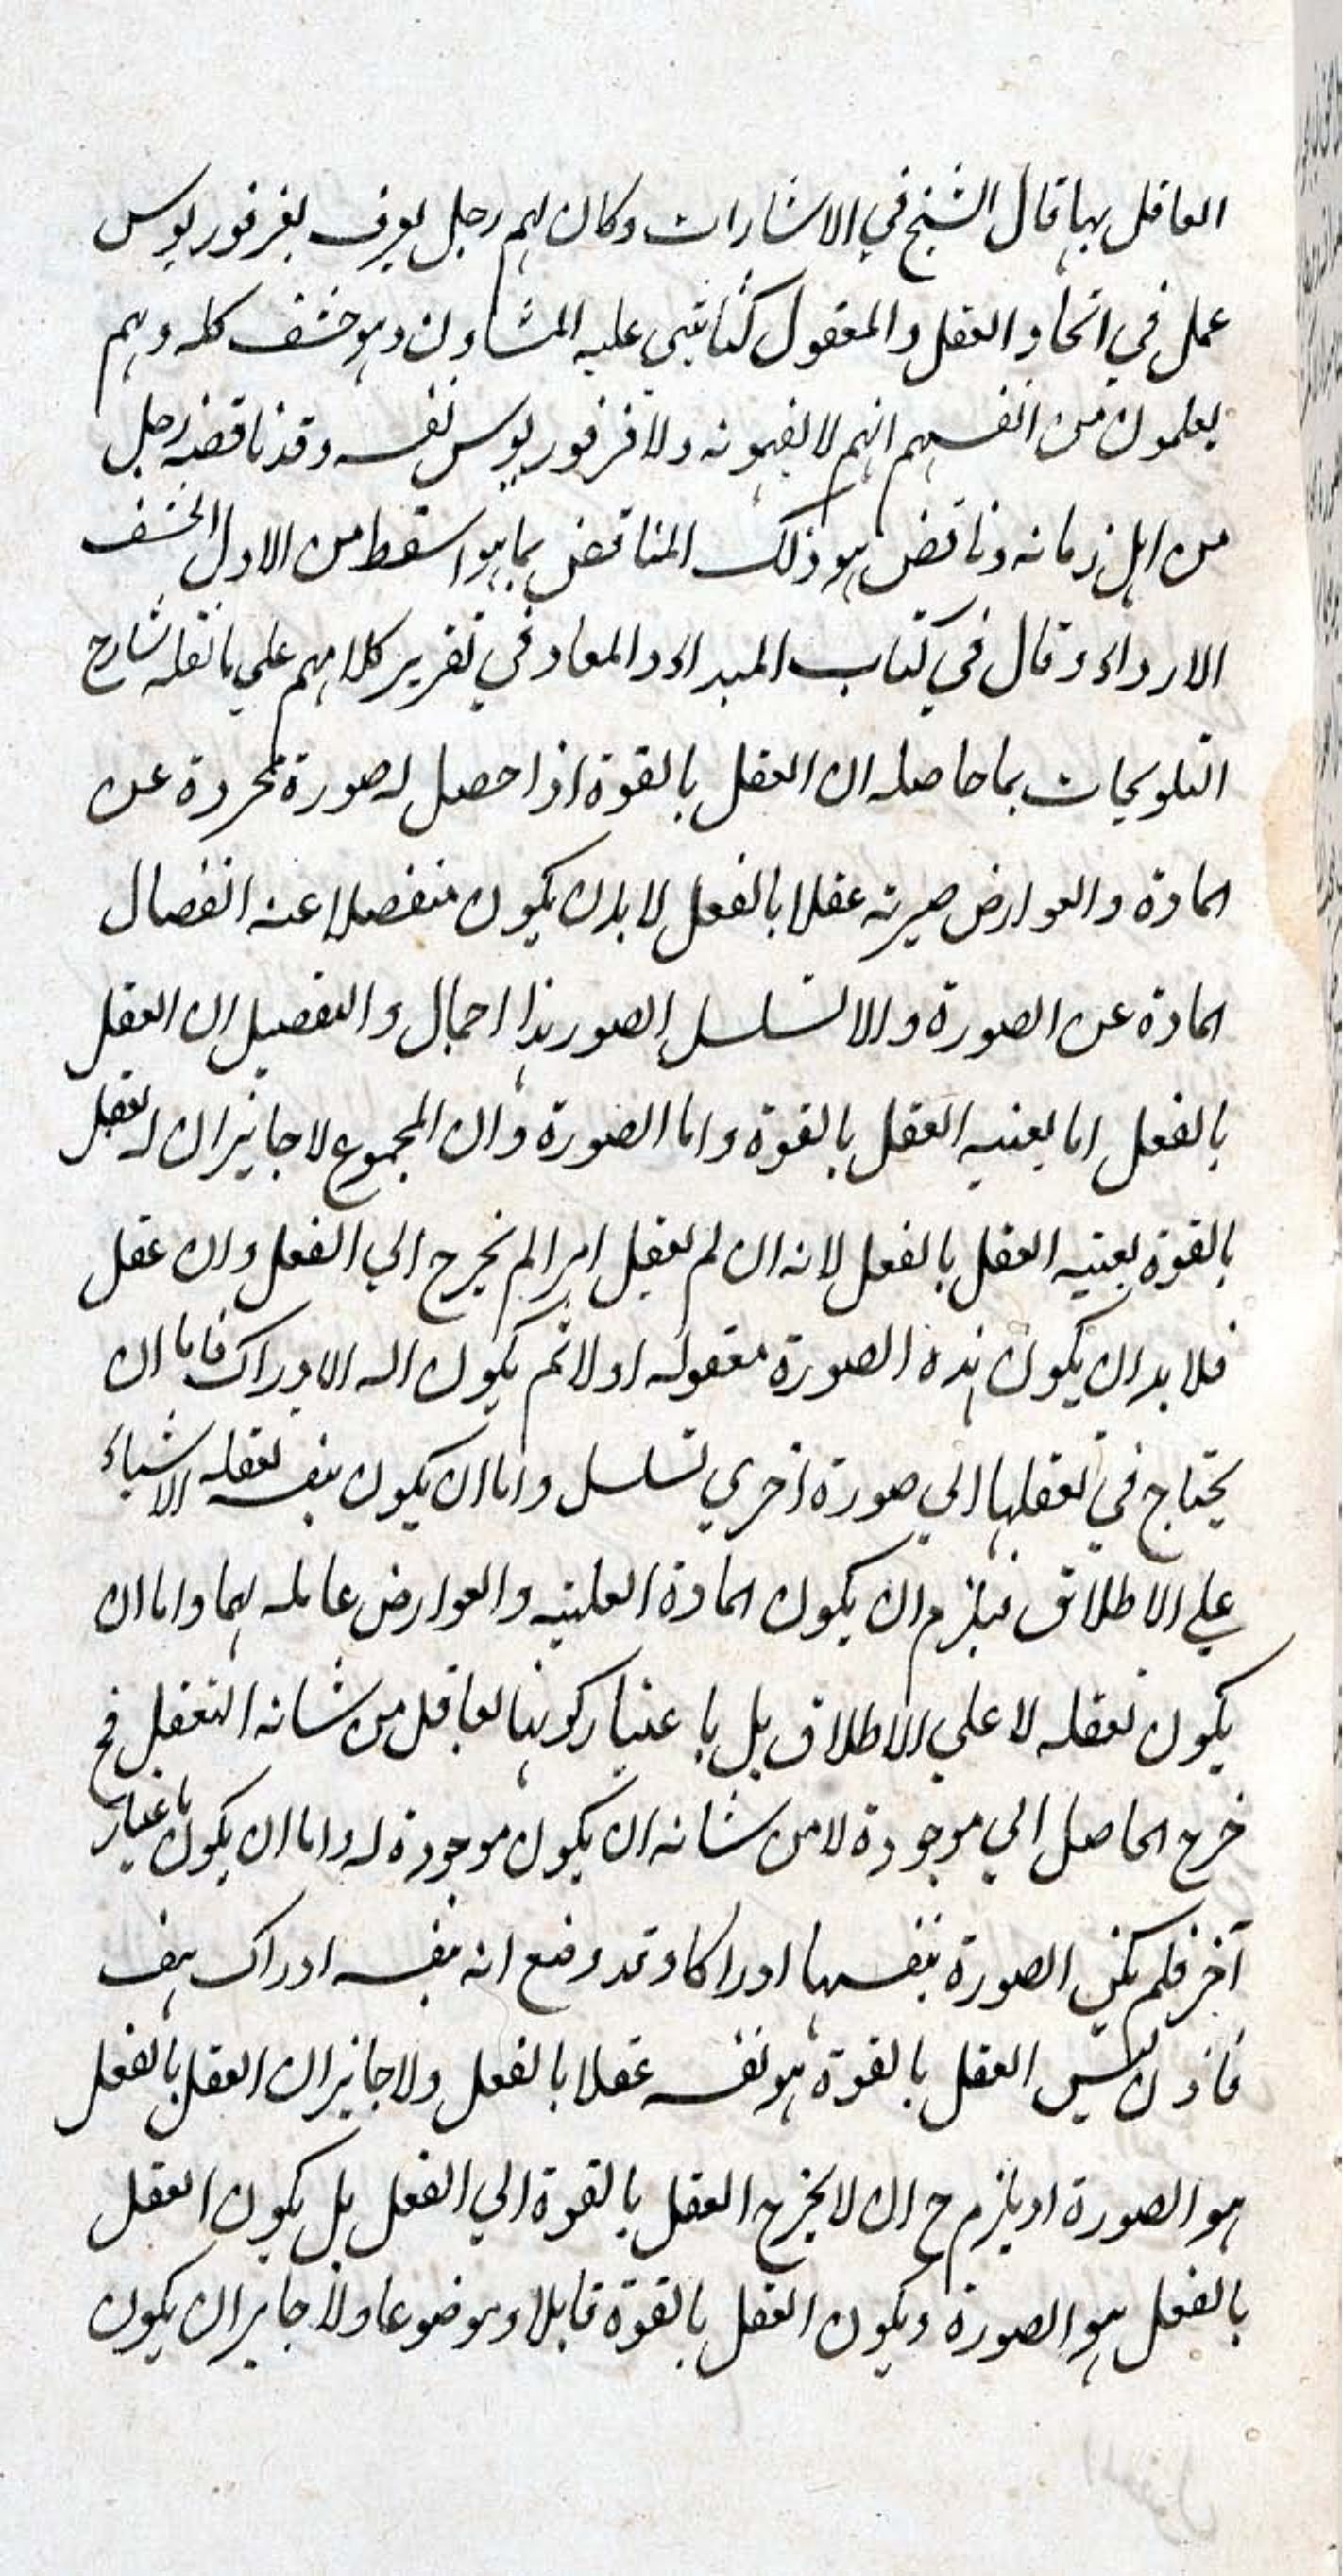 العاقل بها قال الشيخ في الاشارات وكان لهم رجل يعرف بفرفوريوس
عمل في اتحاد العقل والمعقول كتابا يثنى عليه المشاؤن وهو حشف كله وهم
يعلمون من انفسهم انهم لا يفهمونه ولا فرفوريوس نفسه وقد ناقضه رجل
من اهل زمانه وناقض هو ذلك المناقض بما هو اسقط من الاول الحشف
الارداء وقال في كتاب المبداء والمعاد في تقرير كلامهم على ما نقله شارح
التلويحات بما حاصله ان العقل بالقوة اذا حصل له صورة مجردة عن
المادة والعوارض صيرته عقلا بالفعل لا بان يكون منفصلا عنه انفصال
المادة عن الصورة والا لتسلسل الصور هذا اجمال والتفصيل ان العقل
بالفعل اما بعينه العقل بالقوة واما الصورة وان المجموع لا جايز ان له تعقل
بالقوة بعينه العقل بالفعل لانه ان لم يعقل امرا لم يخرج الي الفعل وان عقل
فلا بد ان يكون هذه الصورة معقوله اولا ثم يكون اله الادراك فاما ان
يحتاج في تعقلها الي صورة اخري تسلسل واما ان يكون بنفسه تعقله الاشياء
علي الاطلاق فيلزم ان يكون المادة العلنيه والعوارض عامله لهما واما ان
يكون تعقله لا علي الاطلاق بل باعتبار كونها لعاقل من شانه التعقل فح
خرج الحاصل الي موجودة لامن شانه ان يكون موجودة له واما ان يكون باعتبار
آخر فلم يكن الصورة بنفسها ادراكا وقد وضع انه بنفسه ادراك هف
فاذن ليس العقل بالقوة هو نفسه عقلا بالفعل ولا جايز ان العقل بالفعل
هو الصورة اذ يلزم ح ان لا يخرج العقل بالقوة الي الفعل بل يكون العقل
بالفعل هو الصورة ويكون العقل بالقوة قابلا وموضوعا ولا جايز ان يكون